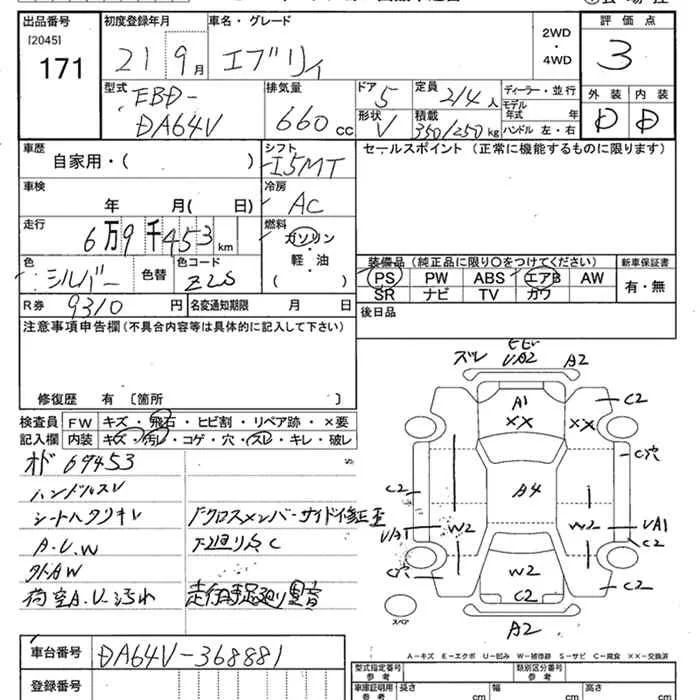 出品番号
[2045]
171
初度登録年月
21 9月
車名・グレード
エブリィ
2WD
・
4WD
評価点
3
型式
EBD-
DA64V
排気量
660 cc
ドア
5
形状
V
定員
2/4人
積載
350/250kg
ディーラー・並行
モデル
年式 年
ハンドル 左・右
外装 内装
D D
車歴
自家用・( )
シフト
I5MT
セールスポイント (正常に機能するものに限ります)
車検
年 月( 日)
冷房
AC
走行
6万9千453km
燃料
ガソリン
・
軽・油
( )
色
シルバー
色替
色コード
Z2S
装備品(純正品に限り〇をつけてください)
PS PW ABS エアB AW
SR ナビ TV カワ
新車保証書
有・無
R券 9310円
名変通知期限 月 日
後日品
注意事項申告欄(不具合内容等は具体的に記入して下さい)
修復歴 有 〔箇所 〕
検査員
記入欄
FW キズ・飛石・ヒビ割・リペア跡・×要
内装 キズ・汚レ・コゲ・穴・スレ・キレ・破レ
オド 69453
ハンドルスレ
シートヘタリキレ
A.U.W
外AW
荷室A.U・汚れ
下クロスメンバーサイド修正歪
下廻りC
走行時足廻り異音
ズレ
UA2
A2
A1
××
××
C2
C穴
C2
A4
UA1
W2
W2
UA1
C2
C穴
W2
C2
C2
A2
スペア
A－キズ E－エクボ U－凹み W－補修跡 S－サビ C－腐食 ××－交換済
車台番号
DA64V-368881
登録番号
型式指定番号
参考
類別区分番号
参考
車庫証明用
参考
長さ cm
幅 cm
高さ cm